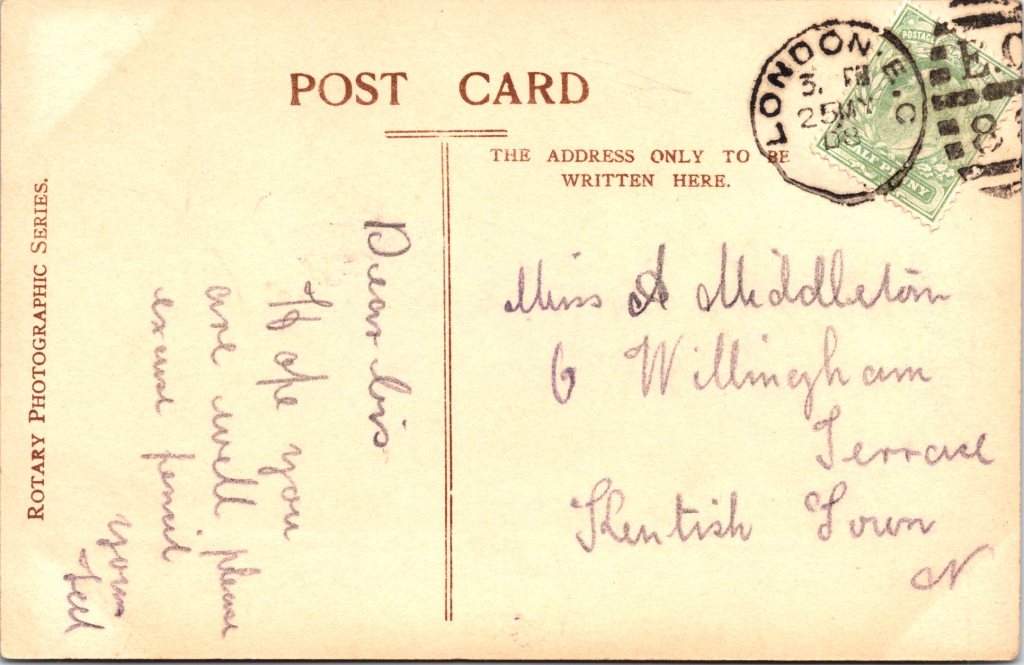 POST CARD
THE ADDRESS ONLY TO BE
WRITTEN HERE.
ROTARY PHOTOGRAPHIC SERIES.
LONDON. E.C
3. PM
25 MY
08
E.C
8
POSTAGE
HALF PENNY
Dear Cis
Hope you
are well please
excuse pencil
yours
Miss A Middleton
6 Willingham
Terrace
Kentish Town
N